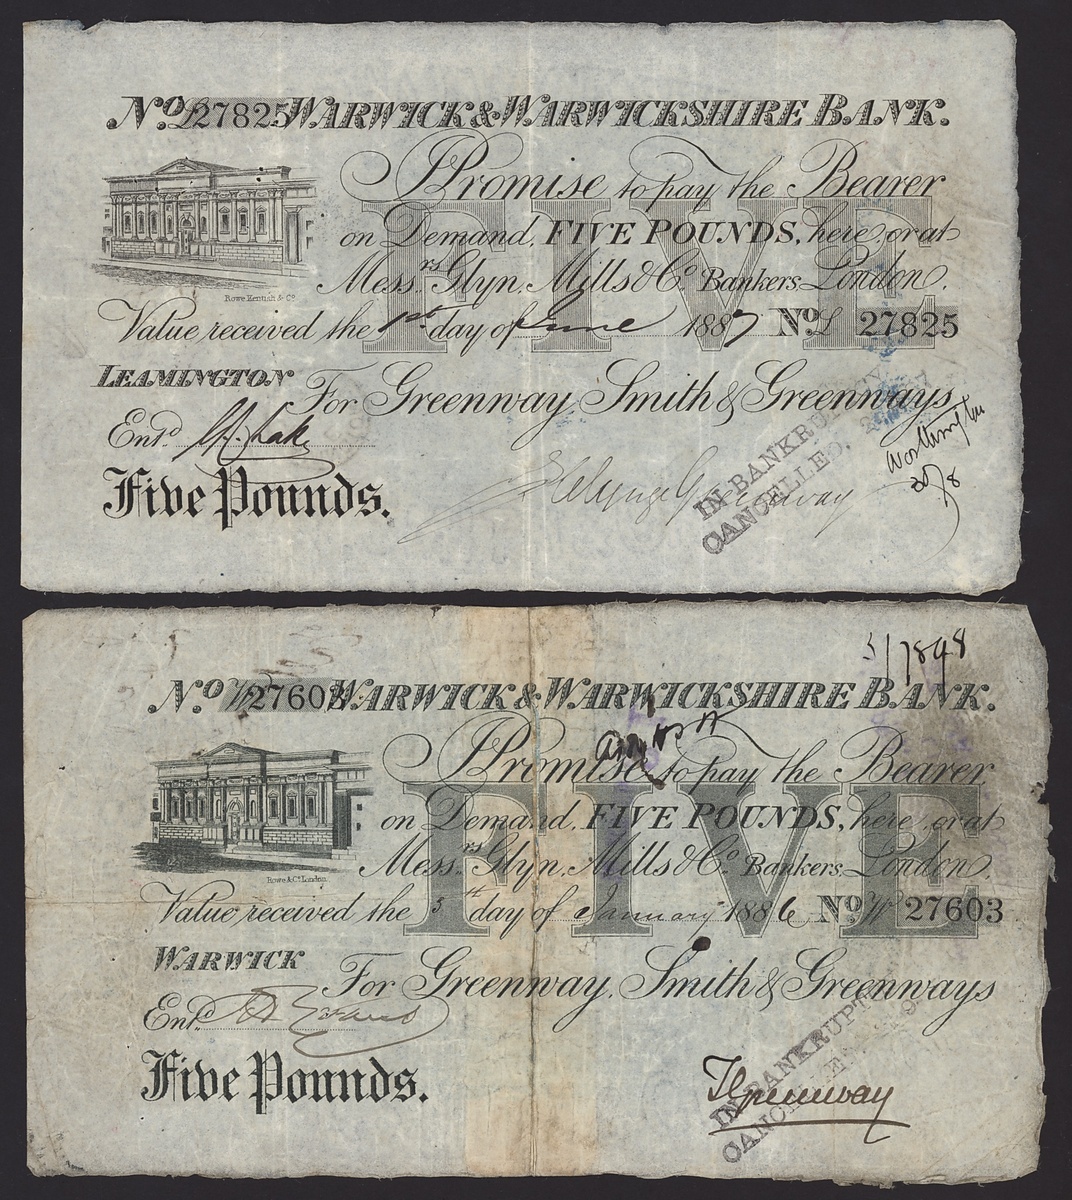 No L27825 WARWICK & WARWICKSHIRE BANK.
I Promise to pay the Bearer
on Demand, FIVE POUNDS, here, or at
Messrs Glyn, Mills & Co Bankers London.
FIVE
Rowe Kentish & Co
Value received the 1st day of June 1887 No L 27825
LEAMINGTON
For Greenway, Smith & Greenways
Entd
Five Pounds.
Greenway
IN BANKRUPTCY
CANCELLED.
No W27603 WARWICK & WARWICKSHIRE BANK.
I Promise to pay the Bearer
on Demand, FIVE POUNDS, here, or at
Messrs Glyn, Mills & Co Bankers London.
FIVE
Rowe & Co London
Value received the 5th day of January 1886 No W 27603
WARWICK
For Greenway, Smith & Greenways
Entd
Five Pounds.
Greenway
IN BANKRUPTCY